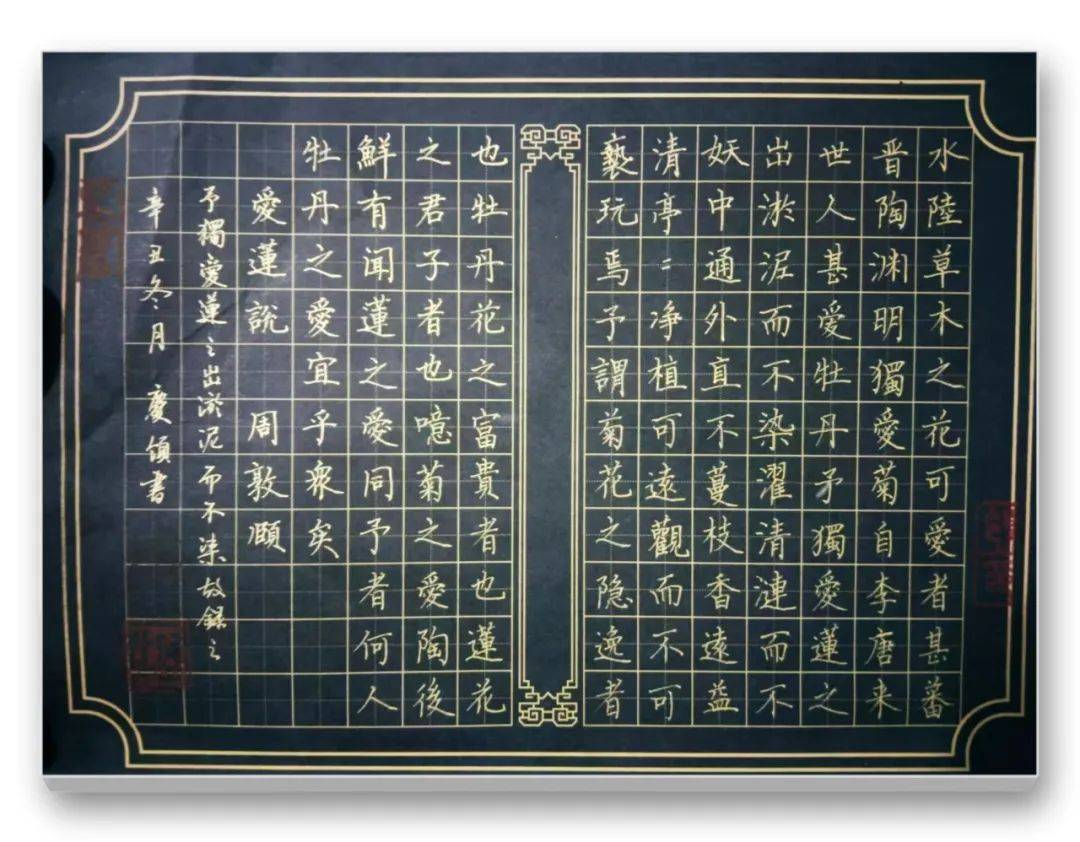 水陸草木之花可愛者甚蕃
晋陶渊明獨愛菊自李唐来
世人甚愛牡丹予獨愛蓮之
出淤泥而不染濯清漣而不
妖中通外直不蔓枝香遠益
清亭〻净植可遠觀而不可
褻玩焉予謂菊花之隐逸者
也牡丹花之富貴者也蓮花
之君子者也噫菊之愛陶後
鮮有闻蓮之愛同予者何人
牡丹之愛宜乎衆矣
愛蓮説 周敦頤
予獨愛蓮之出淤泥而不染故録之
辛丑冬月 慶領書